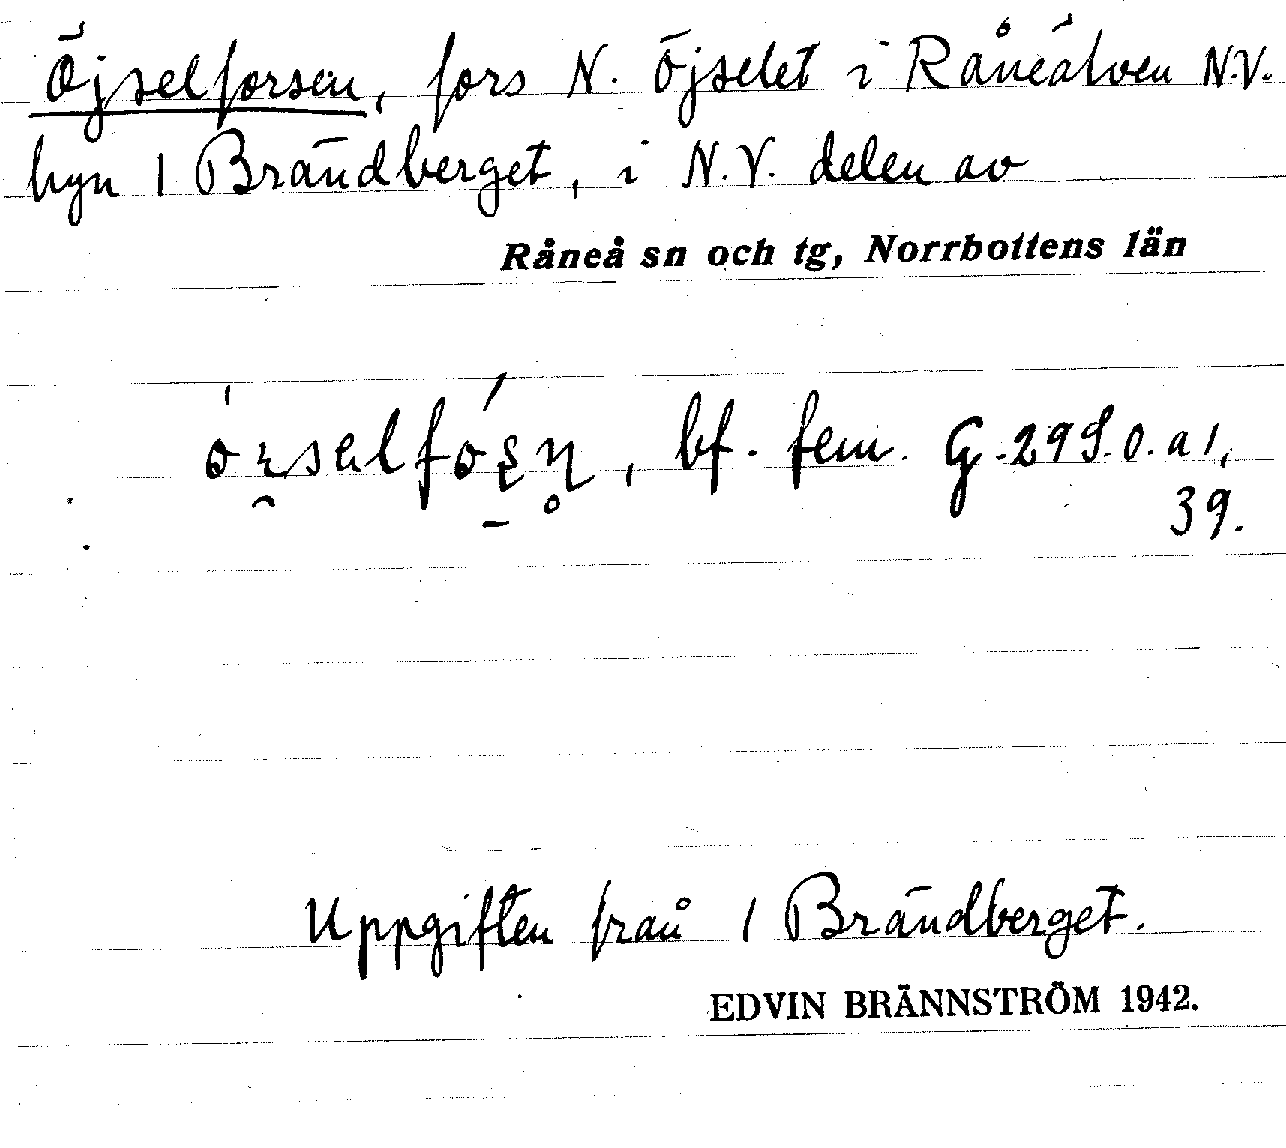 Öjselforsen, fors N. Öjselet i Råneälven N.V.
byn 1 Brändberget, i N.V. delen av
Råneå sn och tg, Norrbottens län
bf. fem. G. 29 S. o. a 1,
39.
Uppgiften från 1 Brändberget.
EDVIN BRÄNNSTRÖM 1942.